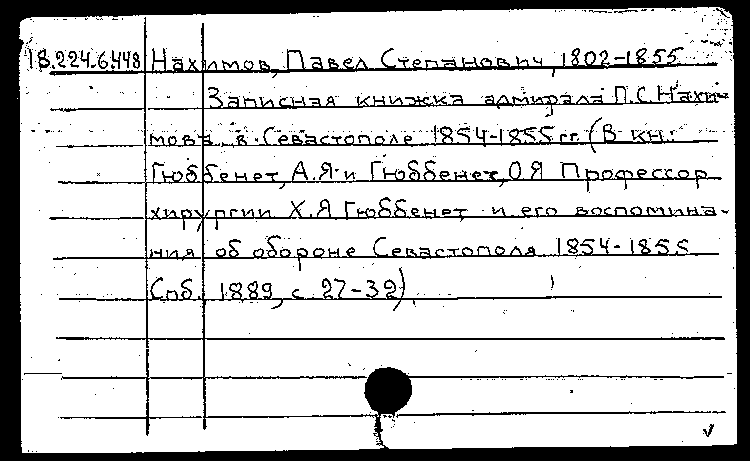 18.224.6.448 Нахимов, Павел Степанович, 1802-1855
Записная книжка адмирала П.С. Нахи-
мова в Севастополе 1854-1855 гг. (В кн.:
Гюббенет, А.Я. и Гюббенет, О.Я Профессор
хирургии Х.Я Гюббенет и его воспомина-
ния об обороне Севастополя 1854-1855
Спб., 1889, с. 27-32).